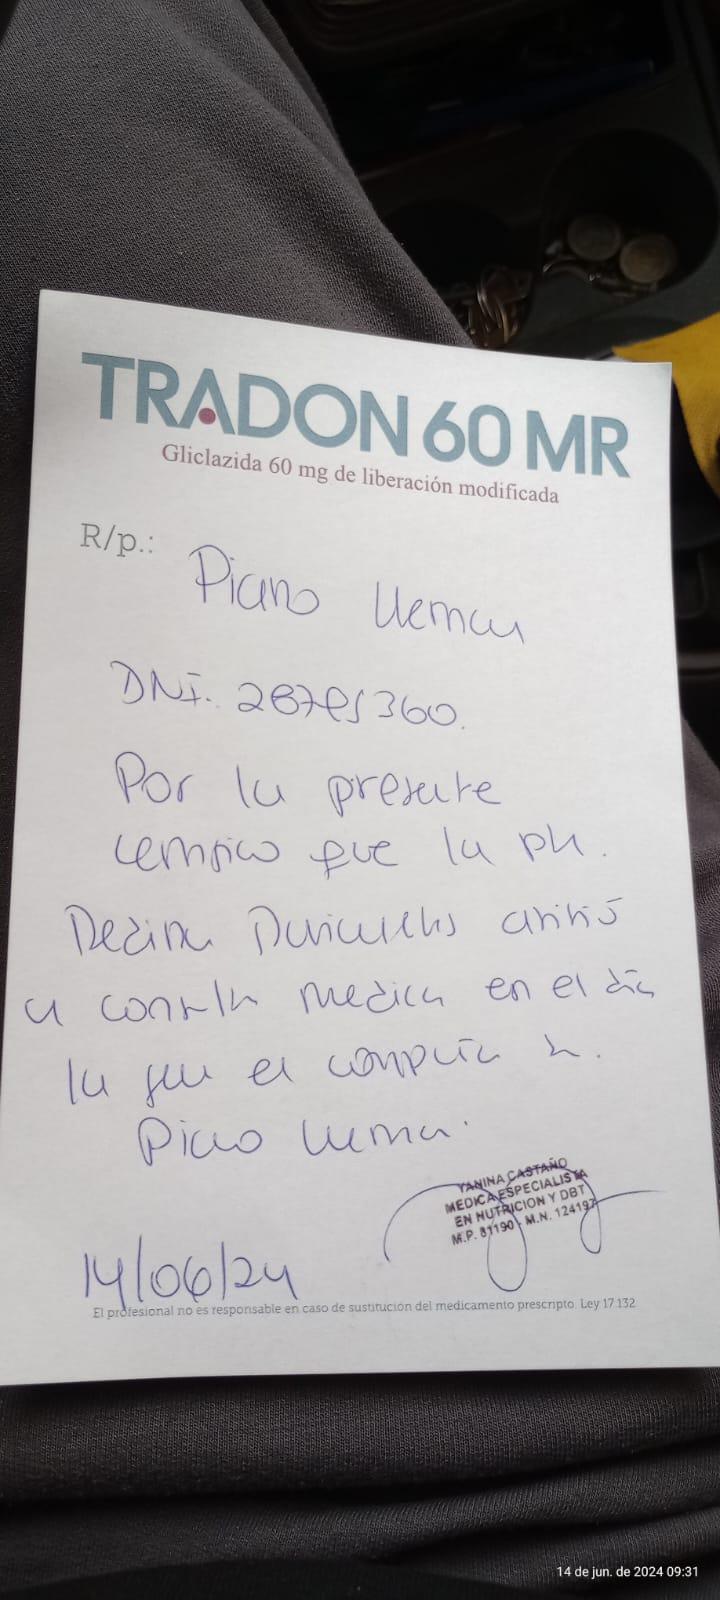 TRADON 60 MR
Gliclazida 60 mg de liberación modificada
R/p.: Piano
DNI.
Por la presente
certifico que la
asistió
a consulta medica en el día
la que el compañia
Piano
YANINA CASTAÑO
MEDICA ESPECIALISTA
EN NUTRICION Y DBT
M.P. 81190 - M.N. 124197
14/06/24
El profesional no es responsable en caso de sustitución del medicamento prescripto. Ley 17.132
14 de jun. de 2024 09:31